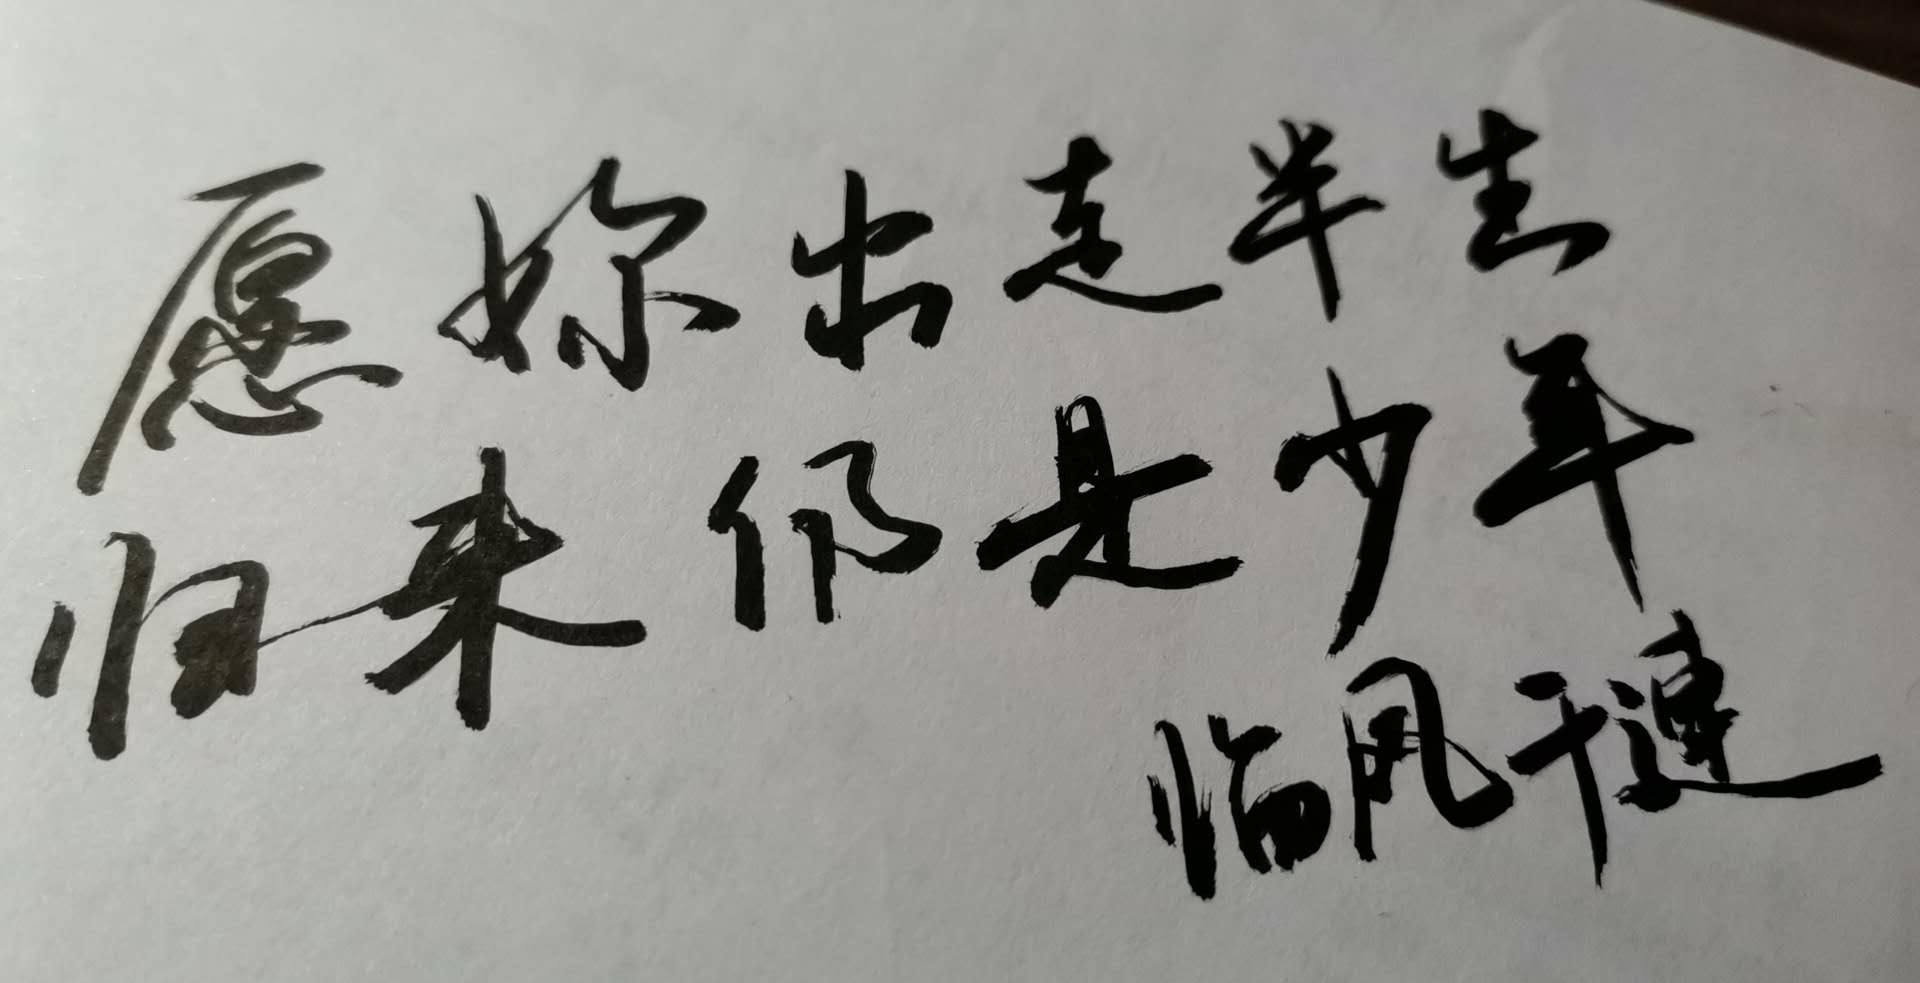 愿妳出走半生
归来仍是少年
临风于连